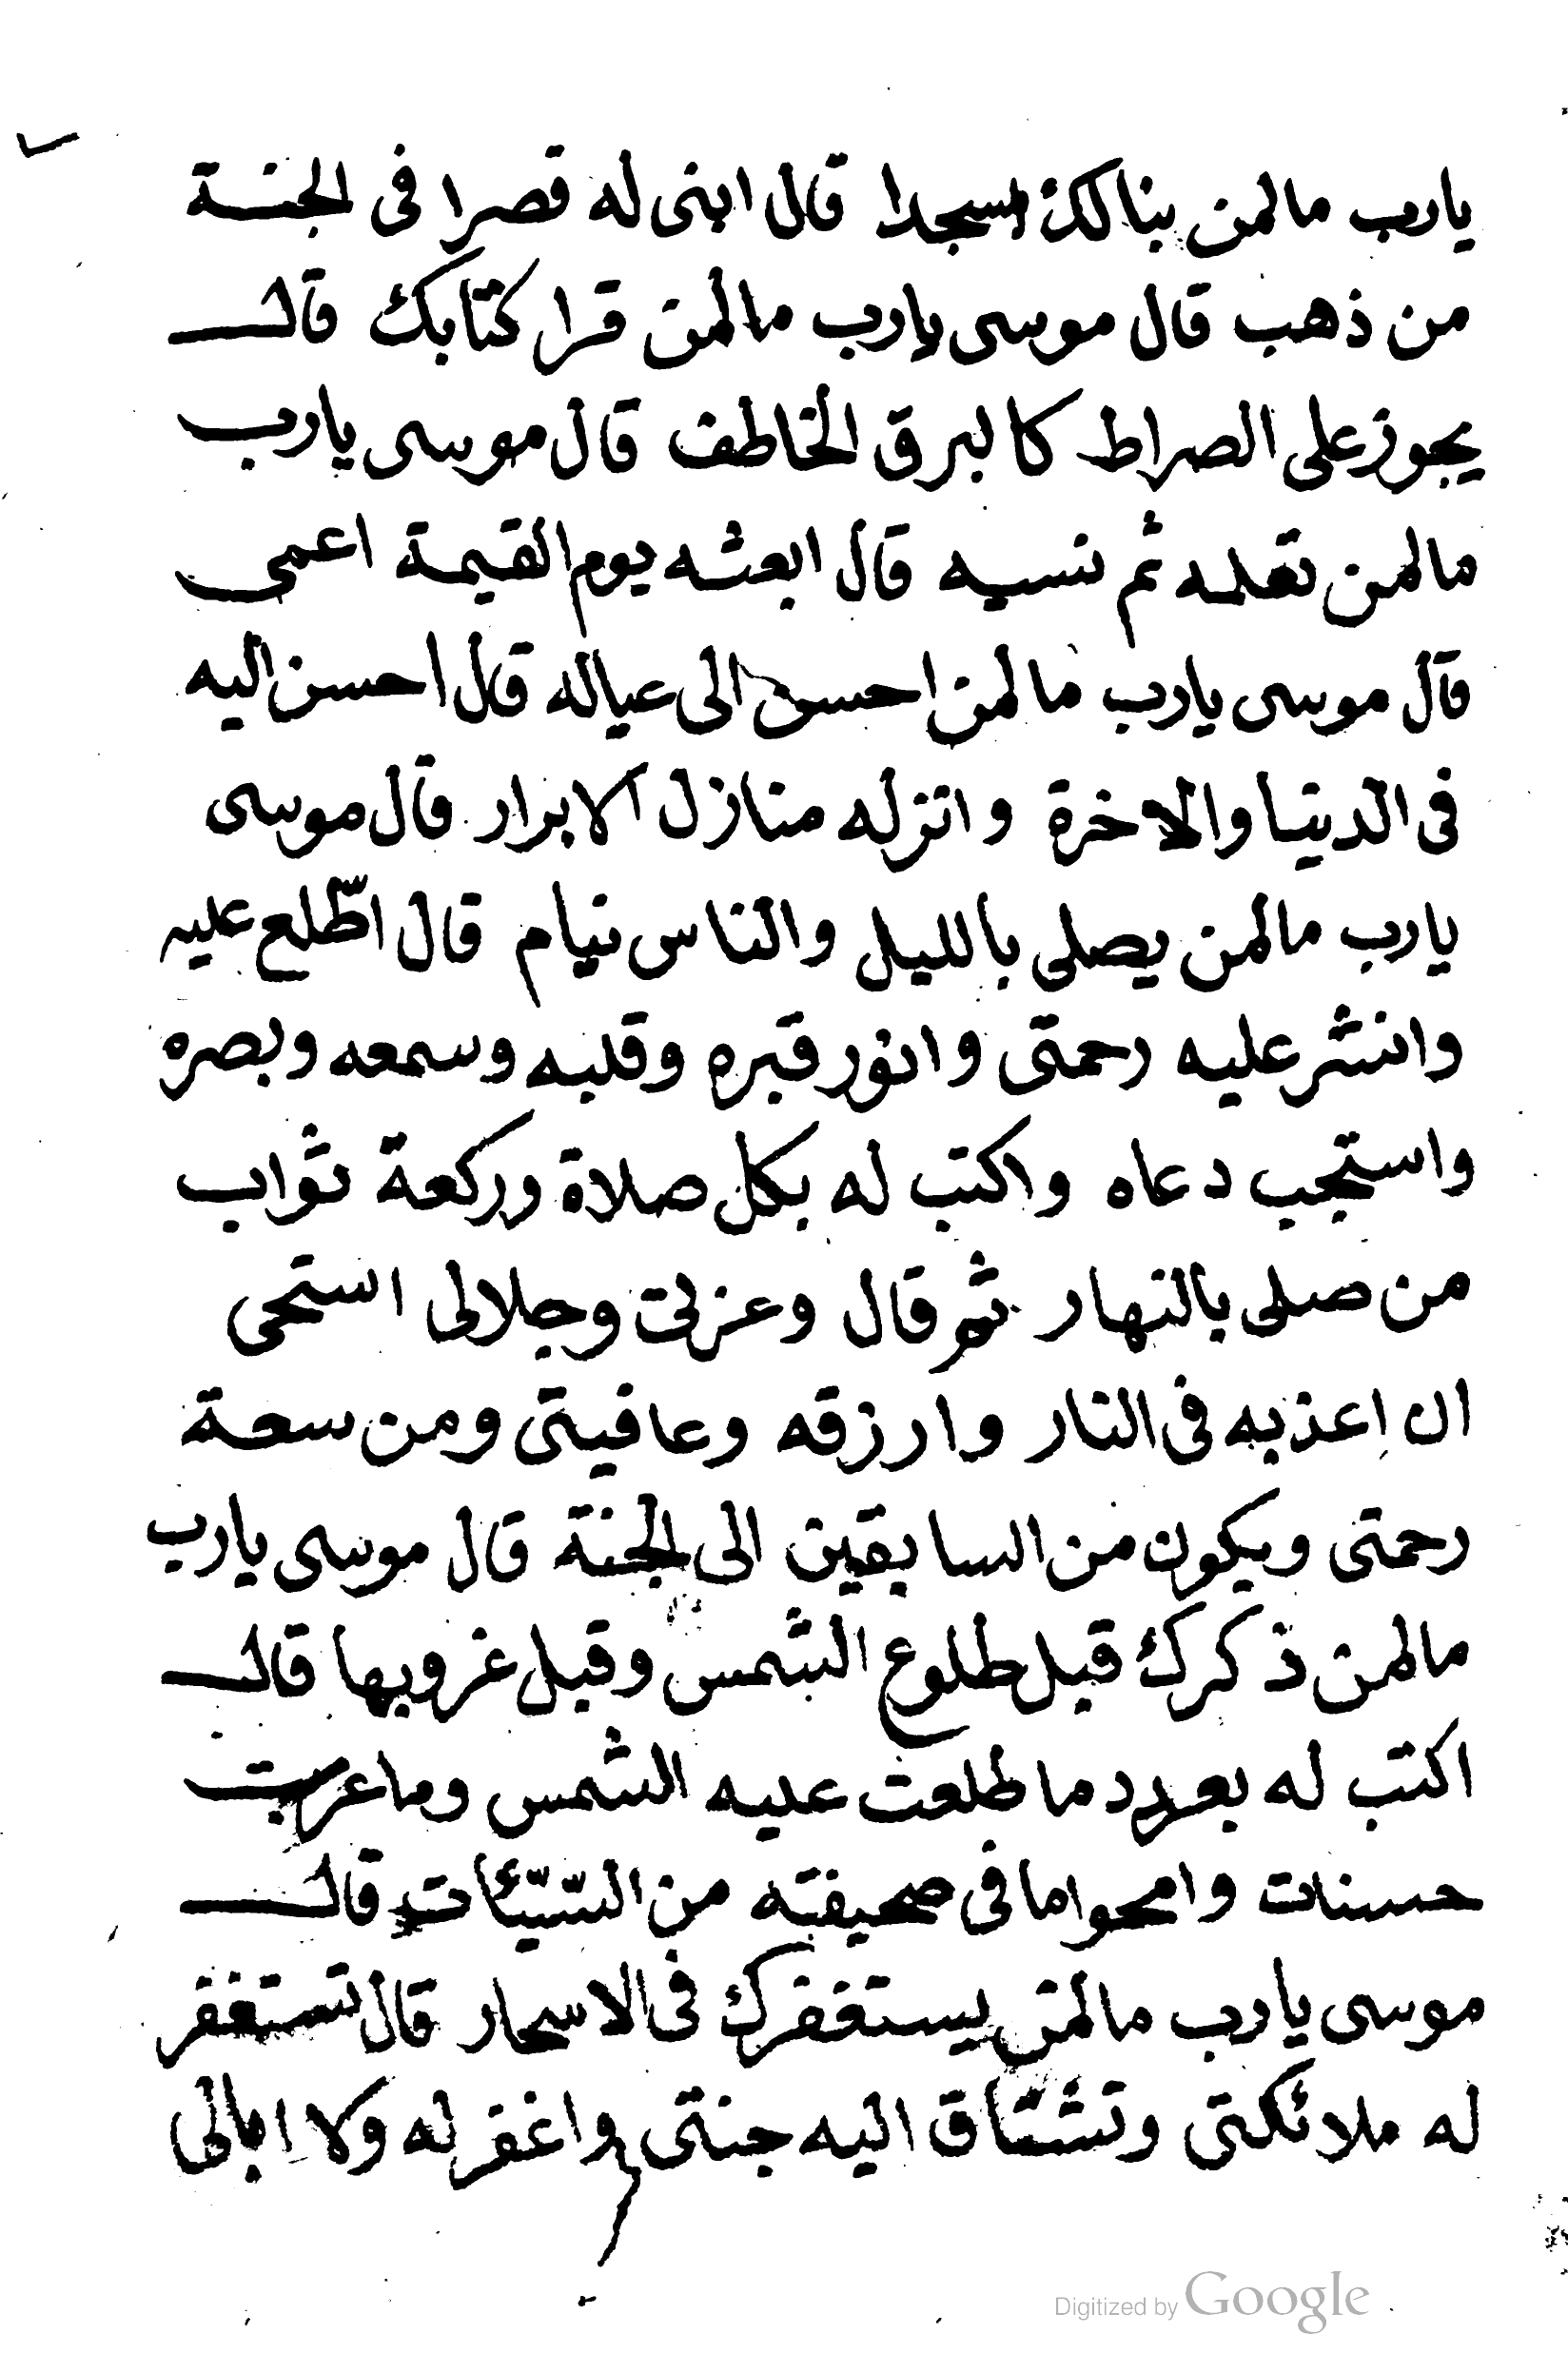 يارب مالمن بنا لك مسجدا قال ابنى له قصرا فى الجنة
من ذهب قال موسى يارب مالمن قرا كتابك قال
يجوز على الصراط كالبرق الخاطف قال موسى يارب
مالمن تعلمه ثم نسيه قال ابعثه يوم القيمة اعمى
قال موسى يارب مالمن احسن الى عياله قال احسن اليه
فى الدنيا والاخرة وانزله منازل الابرار قال موسى
يارب مالمن يصلى بالليل والناس نيام قال اطّلع عليه
وانشر عليه رحمتى وانور قبره وقلبه وسمعه وبصره
واستجيب دعاه واكتب له بكل صلاة وركعة ثواب
من صلى بالنهار ثم قال وعزتى وجلالى استحى
ان اعذبه فى النار وارزقه وعافيتى ومن سعة
رحمتى ويكون من السابقين الى الجنة قال موسى يارب
مالمن ذكرك قبل طلوع الشمس وقبل غروبها قال
اكتب له بعدد ما طلعت عليه الشمس وما غربت
حسنات وامحوا ما فى صحيفته من السّيّئات قال
موسى يارب مالمن يستغفرك فى الاسحار قال تستغفر
له ملائكتى وتشتاق اليه جنتى واغفر له ولا ابالى
Digitized by Google